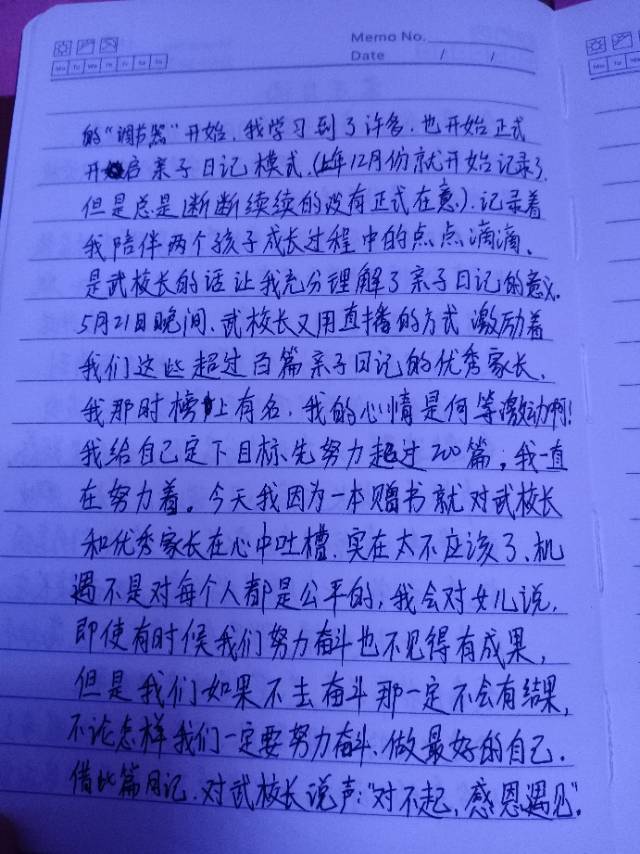 Memo No.
Date / /
Mo Tu We Th Fr Sa Su
的"调节器"开始,我学习到了许多,也开始正式
开启亲子日记模式.(上年12月份就开始记录了,
但是总是断断续续的没有正式在意.).记录着
我陪伴两个孩子成长过程中的点点滴滴、
是武校长的话让我充分理解了亲子日记的意义.
5月21日晚间、武校长又用直播的方式激励着
我们这些超过百篇亲子日记的优秀家长、
我那时榜上有名,我的心情是何等激动啊!
我给自己定下目标、先努力超过200篇;我一直
在努力着。今天我因为一本赠书就对武校长
和优秀家长在心中吐槽、实在太不应该了、机
遇不是对每个人都是公平的,我会对女儿说,
即使有时候我们努力奋斗也不见得有成果,
但是我们如果不去奋斗那一定不会有结果,
不论怎样我们一定要努力奋斗、做最好的自己.
借此篇日记、对武校长说声:"对不起,感恩遇见".